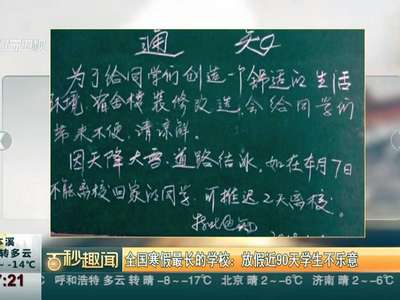 通 知
为了给同学们创造一个舒适的生活
环境,宿舍楼装修改造,会给同学们
带来不便,请谅解。
因天降大雪,道路结冰,如在本月7日
不能离校回家的同学,可推迟2天离校。
特此通知
本溪
转多云
~ -14℃
百秒趣闻
全国寒假最长的学校:放假近90天学生不乐意
7:21
呼和浩特 多云 转 晴 -8~-17℃ 北京 晴 2~-6℃ 济南 晴 2~-6℃